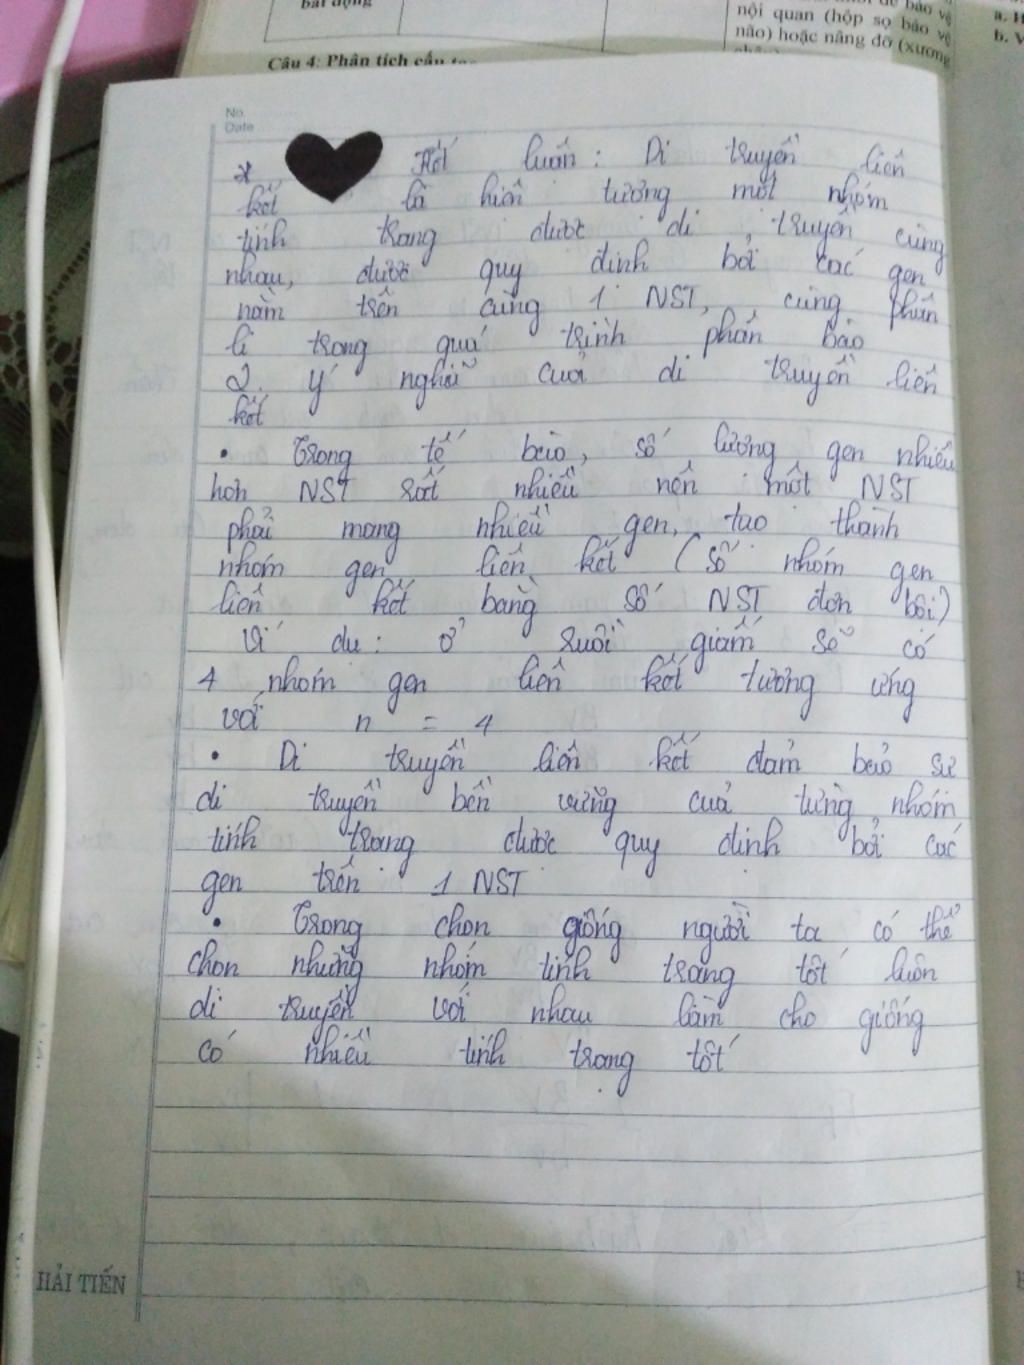 bất động
nội quan (hộp sọ bảo vệ
não) hoặc nâng đỡ (xương
a. H
b. V
Câu 4: Phân tích cấu
No.
Date
* Kết luân: Di truyền liên
kết là hiên tương môt nhóm
tính trang được di truyền cùng
nhau, được quy đinh bởi các gen
nằm trên cùng 1 NST, cùng phân
li trong quá trình phân bào
2. Ý nghĩa của di truyền liên
kết
• Trong tế bào, số lương gen nhiều
hơn NST rất nhiều nên môt NST
phải mang nhiều gen, tao thành
nhóm gen liên kết (số nhóm gen
liên kết bằng số NST đơn bôi)
Ví du: ở ruồi giấm sẽ có
4 nhóm gen liên kết tương ứng
với n = 4
• Di truyền liên kết đảm bảo sư
di truyền bền vững của từng nhóm
tính trang được quy đinh bởi các
gen trên 1 NST
• Trong chon giống người ta có thể
chon những nhóm tính trang tốt luôn
di truyền với nhau làm cho giống
có nhiều tính trang tốt
HẢI TIẾN